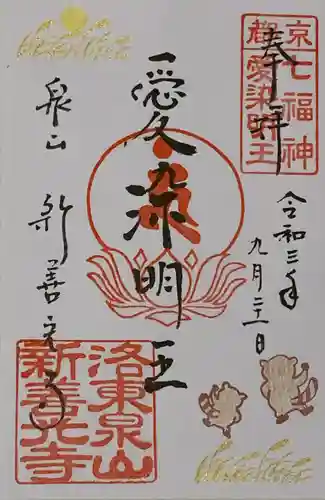 奉拝
京都
七福神
愛染明王
令和三年
九月二十一日
愛染明王
泉山
新善光寺
洛東泉山
新善光寺